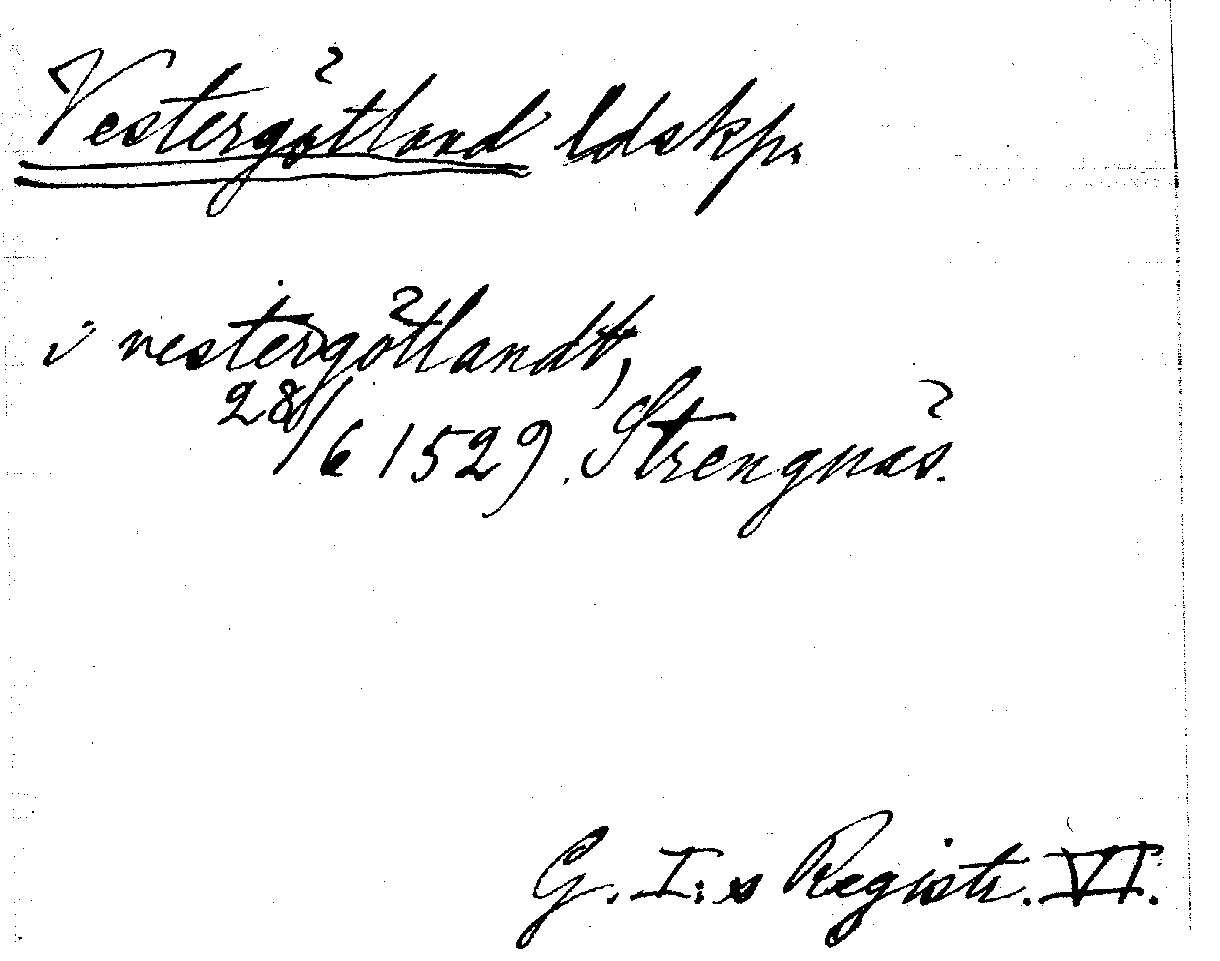 Vestergötland ldskp.
i vestergötlandtt,
28/6 1529. Strengnäs.
G. I:s Registr. VI.